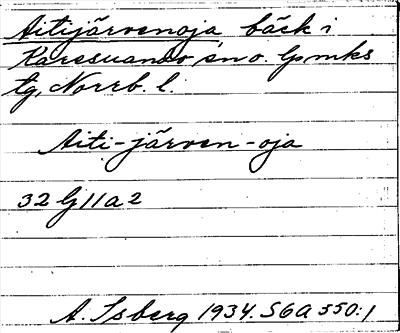 Aitijärvenoja bäck i
Karesuando sn o. lpmks
tg, Norrb. l.
Aiti-järven-oja
32 G 11 a 2
A. Isberg 1934. S6A 550:1